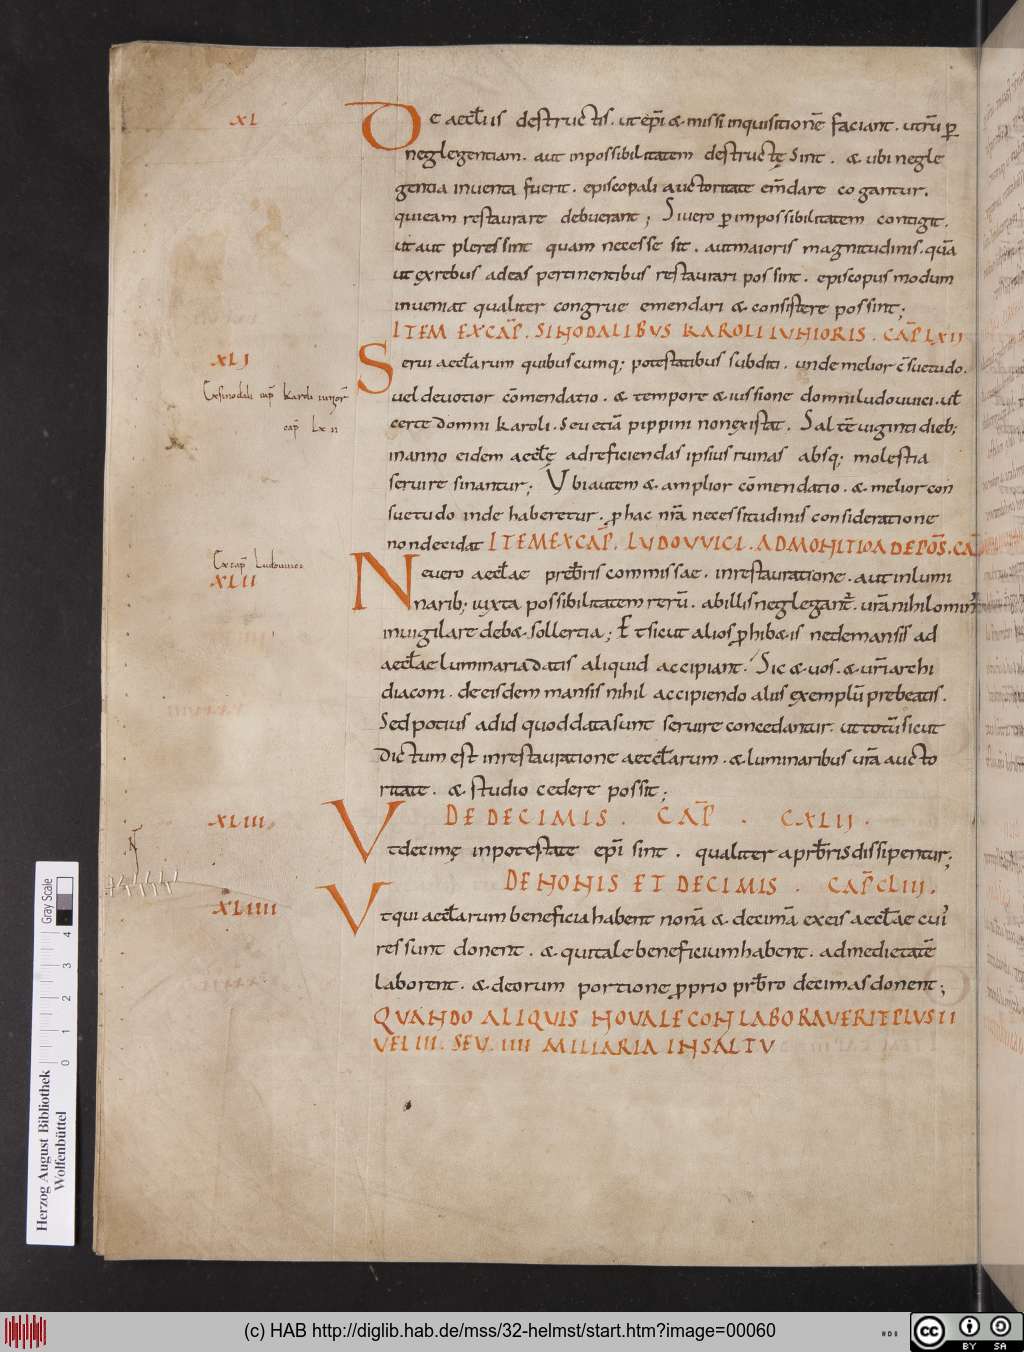 XL
De aecclis destructis. ut epi & missi inquisitionē faciant. utrū p̄
neglegentiam. aut inpossibilitatem destructę sint. & ubi negle
gentia inuenta fuerit. episcopali auctoritate em̄dare cogantur.
qui eam restaurare debuerant; Si uero p̄ impossibilitatem contigit.
ut aut plures sint quam necesse sit. aut maioris magnitudinis. quā
ut ex rebus ad eas pertinentibus restaurari possint. episcopus modum
inueniat qualiter congrue emendari & consistere possint;
ITEM EX CAP̄. SINODALIBUS KAROLI IUNIORIS. CAP̄ LXII
XLI
Serui aecclarum quibuscumq; potestatibus subditi. unde melior c̄suetudo.
Ex sinodali cap̄ karoli iunior̄
cap̄ Lx ii
uel deuotior cōmendatio. & tempore & iussione domni ludouuici. ul
certe domni karoli. seu etiā pippini non existat. Saltē uiginti dieb;
in anno eidem aecclę ad reficiendas ipsius ruinas absq; molestia
seruire sinantur; Ubi autem & amplior cōmendatio. & melior con
suetudo inde haberetur. p̄ hac nrā necessitudinis consideratione
non decidat ITEM EX CAP̄. LUDOUUICI. ADMONITIO AD EPŌS. CA
Ex cap̄ Ludouuici
XLII
Ne uero aecclae prēbris commissae. in restauratione. aut in lumi
narib; iuxta possibilitatem rerū. ab illis neglegant̄. urā nihilomin
inuigilare deb& sollertia; Et sicut alios p̄hib&is ne de mansis ad
aecclae luminaria datis aliquid accipiant. Sic & uos. & urī archi
diaconi. de eisdem mansis nihil accipiendo aliis exemplū prebeatis.
Sed potius ad id quod data sunt seruire concedantur. ut totū sicut
dictum est in restauratione aecclarum. & luminaribus urā aucto
ritate. & studio cedere possit;
XLIII
DE DECIMIS. CAP̄. CXLII.
Ut decimę in potestate epi sint. qualiter a prbris dissipentur;
XLIIII
DE NONIS ET DECIMIS. CAP̄ CLIII.
Ut qui aecclarum beneficia habent nonā & decimā ex eis aecclae cui
res sunt donent. & qui tale beneficium habent. ad medietatē
laborent. & de eorum portione p̄prio prbro decimas donent;
QUANDO ALIQUIS NOUALE CONLABORAUERIT PLUS II
UEL III. SEU. IIII MILIARIA IN SALTU
Herzog August Bibliothek
Wolfenbüttel
0 1 2 3 4
Gray Scale
(c) HAB http://diglib.hab.de/mss/32-helmst/start.htm?image=00060
cc BY SA